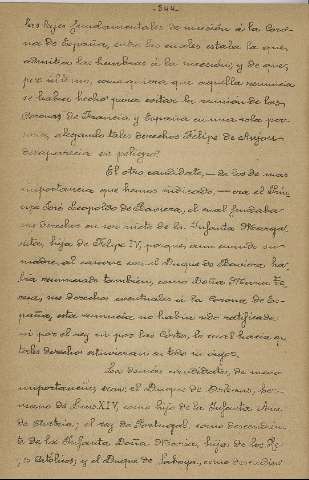 344
las leyes fundamentales de sucesión á la Coro-
na de España, entre las cuales estaba la que
admitía las hembras á la sucesión; y de que,
por último, como quiera que aquella renuncia
se había hecho para evitar la reunión de las
Coronas de Francia y España en una sola per-
sona, alegando tales derechos Felipe de Anjou
desaparecía ese peligro.
El otro candidato, — de los de mas
importancia que hemos indicado, — era el Prín-
cipe José Leopoldo de Baviera, el cual fundaba
sus derechos en ser nieto de la Infanta Marga-
rita, hija de Felipe IV, porque, aun cuando su
madre, al casarse con el Duque de Baviera, ha-
bía renunciado también, como Doña María Te-
resa, sus derechos eventuales á la Corona de Es-
paña, esta renuncia no había sido ratificada
ni por el rey ni por las Cortes, lo cual hacía que
tales derechos estuvieran en todo su vigor.
Los demás candidatos, de menos
importancia, eran: el Duque de Orleans, her-
mano de Luis XIV, como hijo de la Infanta Ana
de Austria; el rey de Portugal como descendien-
te de la Infanta Doña María, hija de los Re-
yes Católicos; y el Duque de Saboya, como